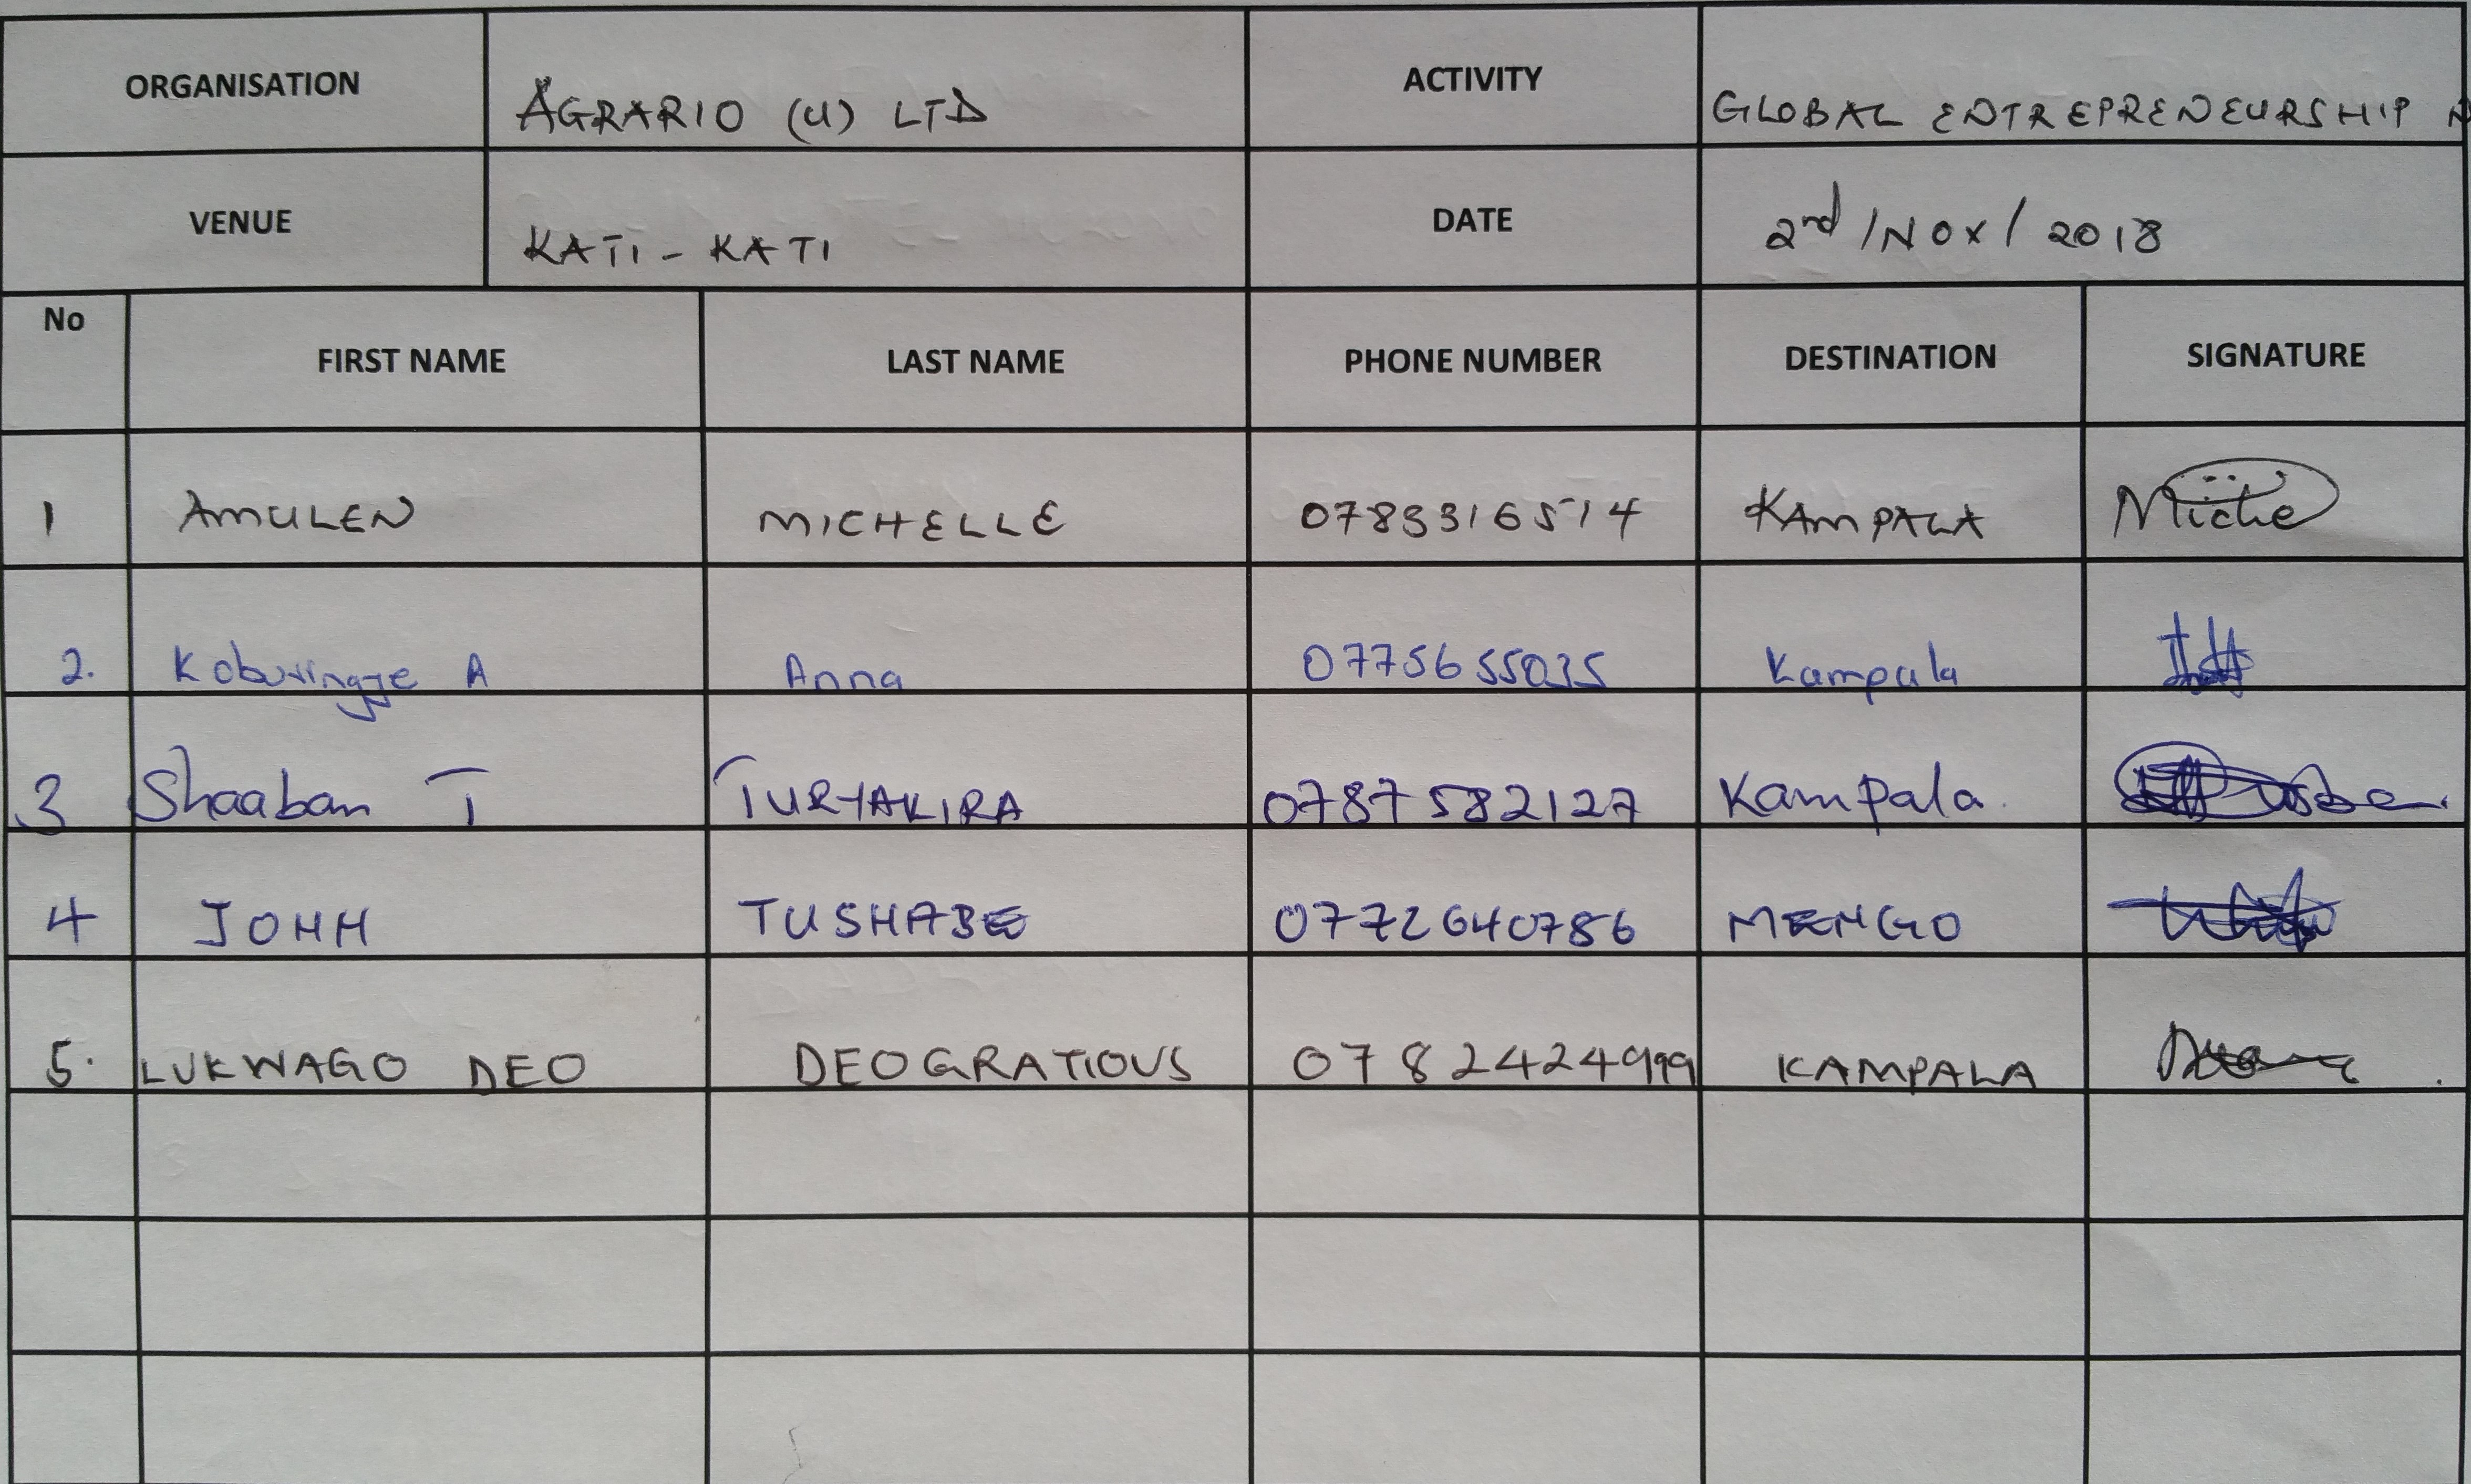 ORGANISATION AGRARIO (U) LTD ACTIVITY GLOBAL ENTREPRENEURSHIP
VENUE KATI - KATI DATE 2nd /NOV/ 2018
No FIRST NAME LAST NAME PHONE NUMBER DESTINATION SIGNATURE
1 AMULEN MICHELLE 0783316514 KAMPALA Miche
2. A Anna 0775655035 Kampala
3 Shaaban T TURYAKIRA 0787582127 Kampala
4 JOHN TUSHABE 0772640786 MENGO
5. LUKWAGO DEO DEOGRATIOUS 0782424999 KAMPALA